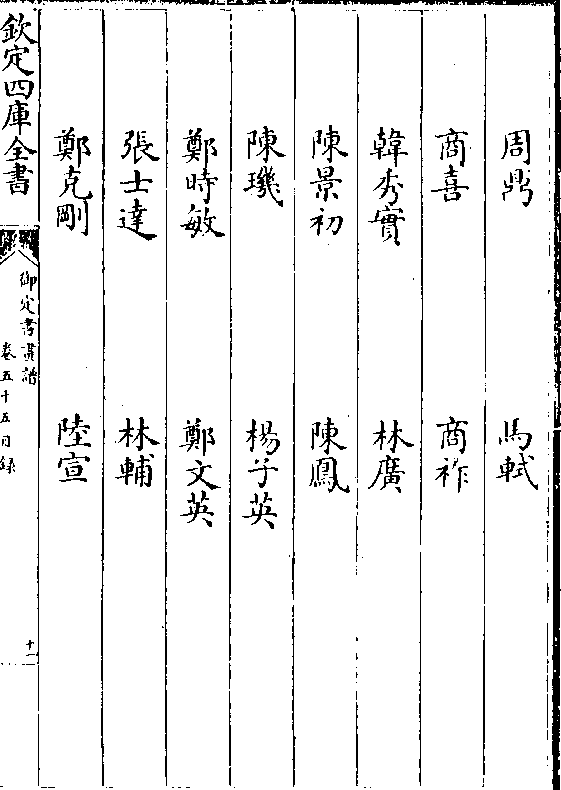 周鼎　馬軾
商喜　商祚
韓秀實　林廣
陳景初　陳鳳
陳璣　楊子英
鄭時敏　鄭文英
張士達　林輔
鄭克剛　陸宣
欽定四庫全書
御定書畫譜
卷五十五目録
十一